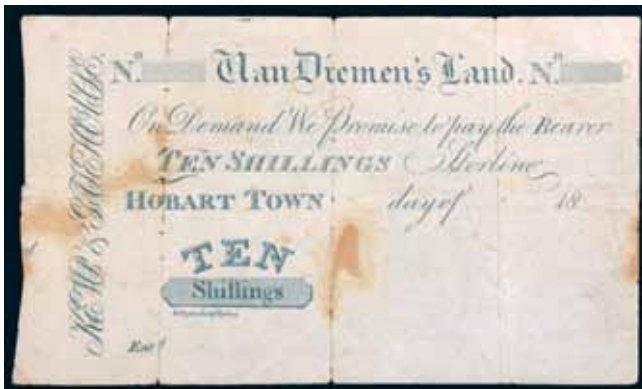 No. Van Diemen's Land. No.
On Demand We Promise to pay the Bearer
TEN SHILLINGS Sterling
HOBART TOWN day of 18
TEN
Shillings
Entd.